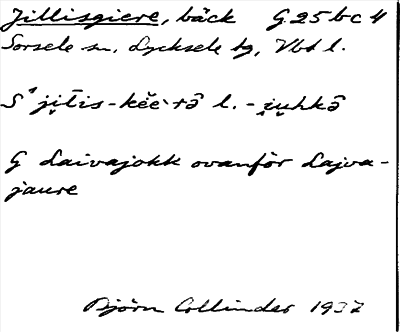 Jillisgiere, bäck G 25 b c 4
Sorsele sn, Lycksele tg, Vbt l.
S' ji̮t̄is-kĕe·rə̑ l. -i̮u̮hkə̑
G Laivajokk ovanför Lajva-
jaure
Björn Collinder 1937